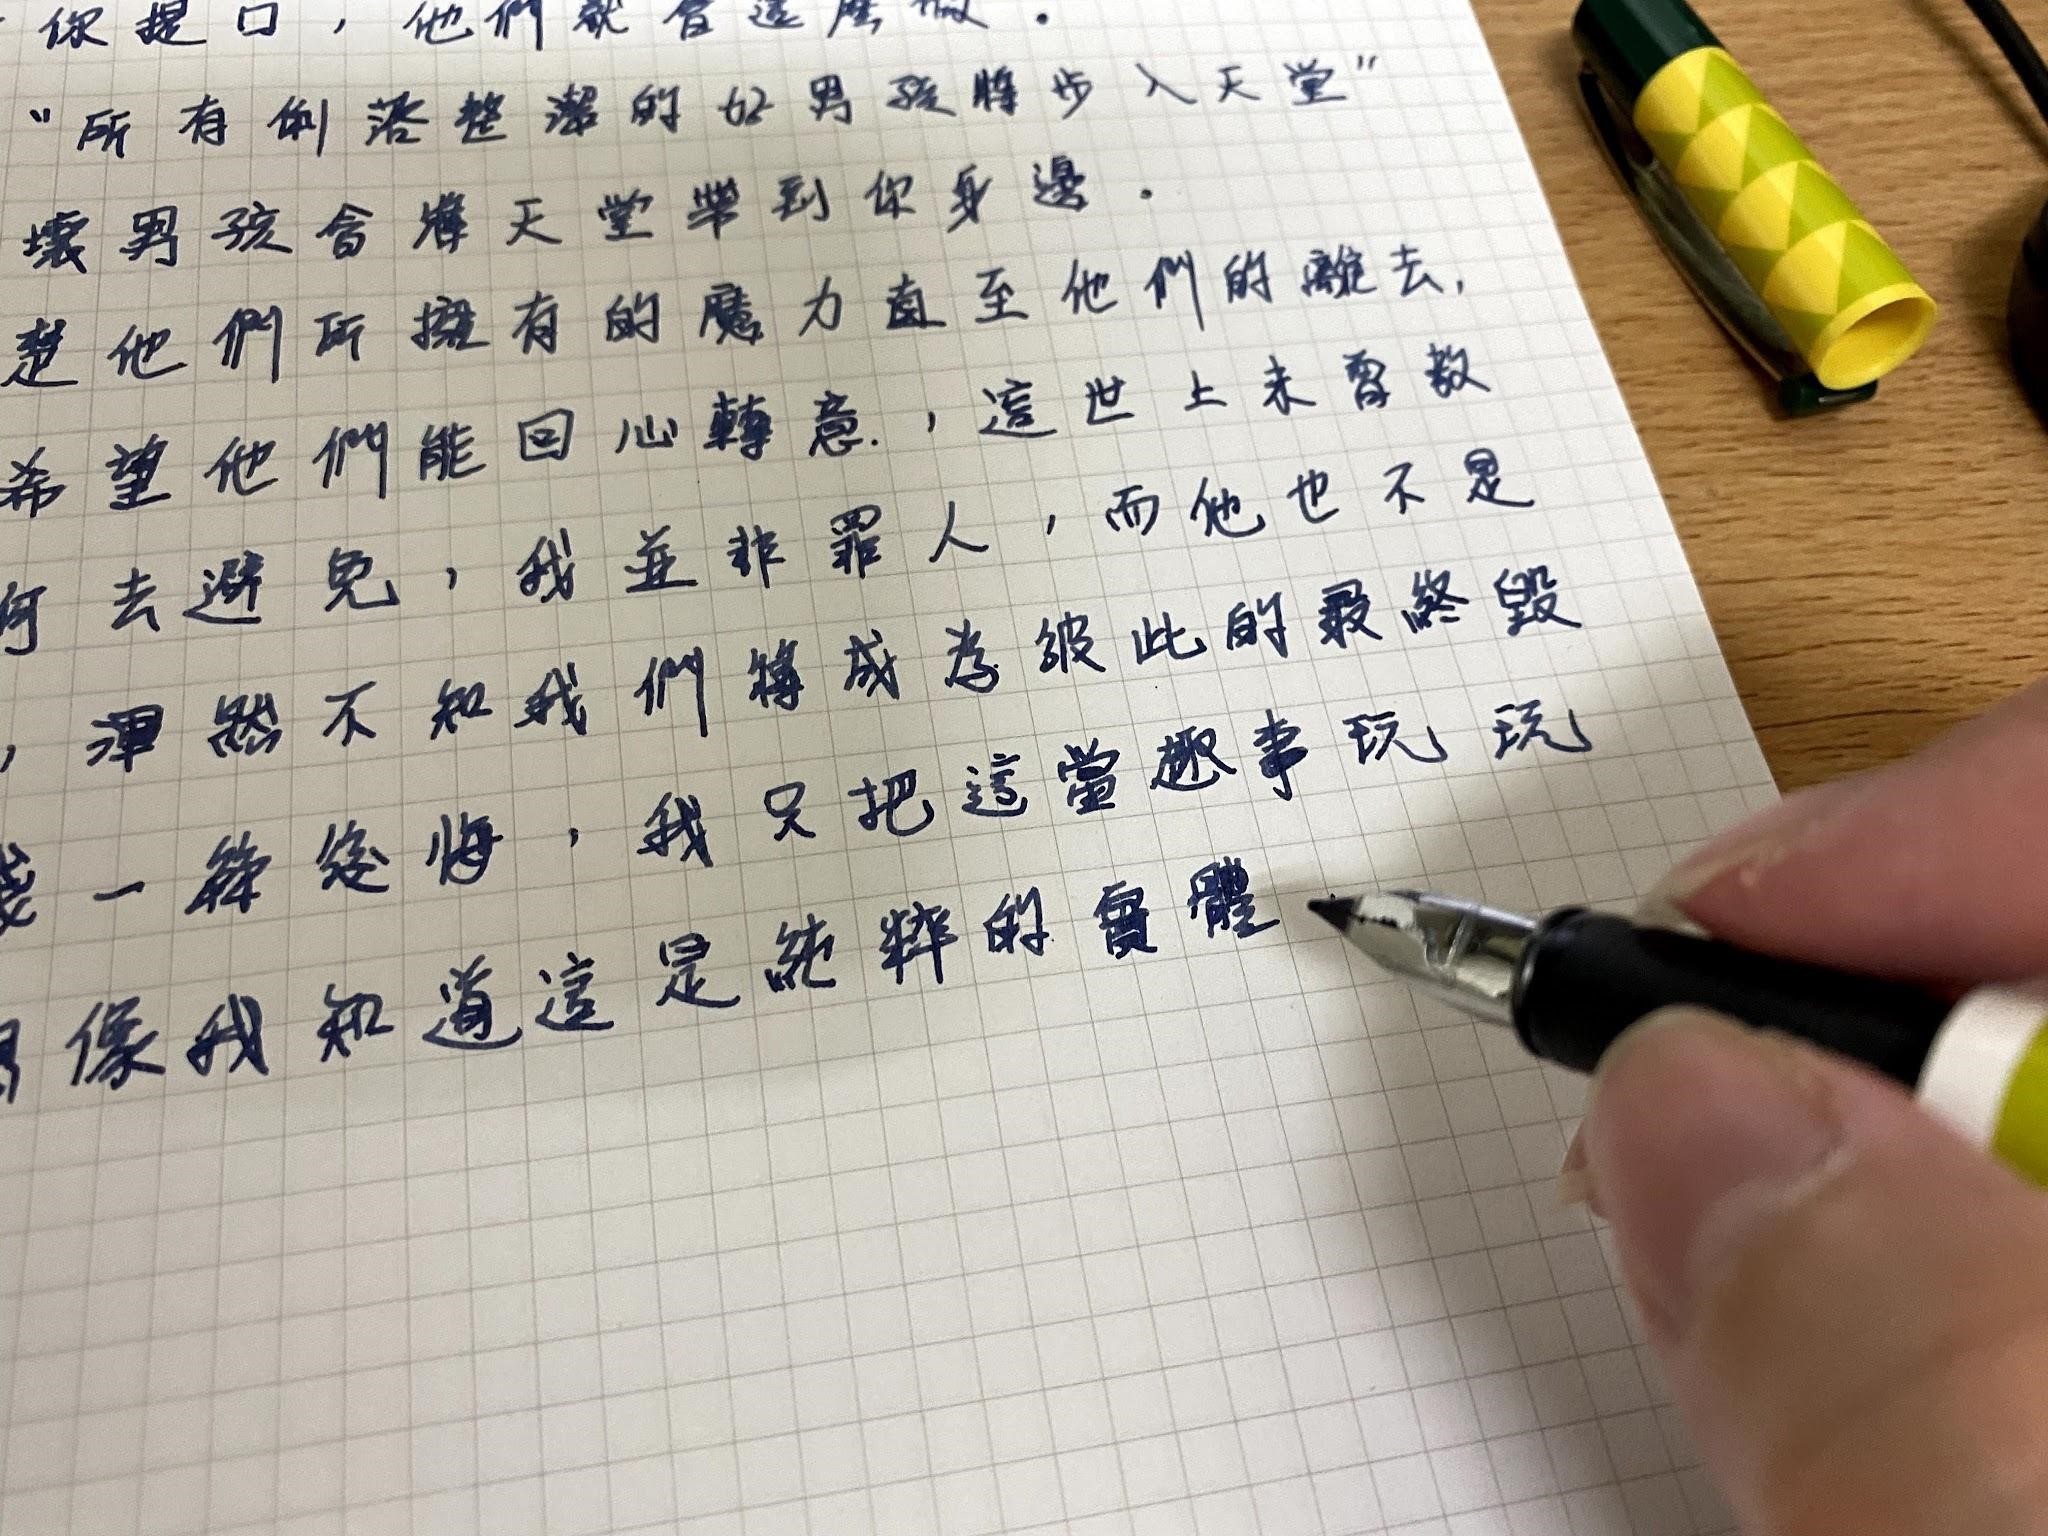 你提口，他們就會這麼做.
“所有俐落整潔的好男孩將步入天堂”
壞男孩會將天堂帶到你身邊.
楚他們所擁有的魔力直至他們的離去,
希望他們能回心轉意，這世上未曾教
何去避免，我並非罪人，而他也不是
，渾然不知我們將成為彼此的最終毀
一絲後悔，我只把這當趣事玩玩
像我知道這是純粹的實體